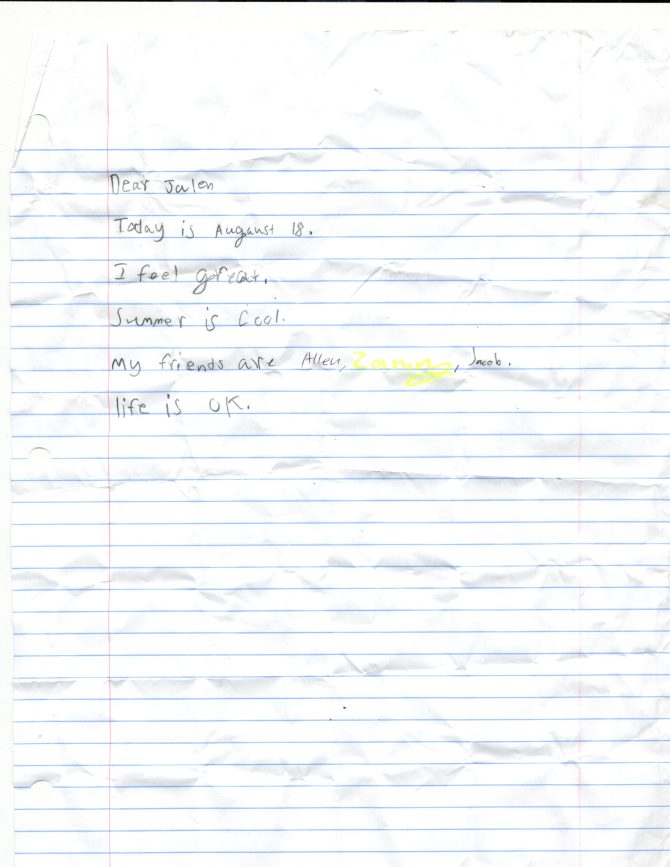 Dear Jalen
Today is Augaust 18.
I feel great.
Summer is Cool.
My friends are Allen, , Jacob.
life is OK.